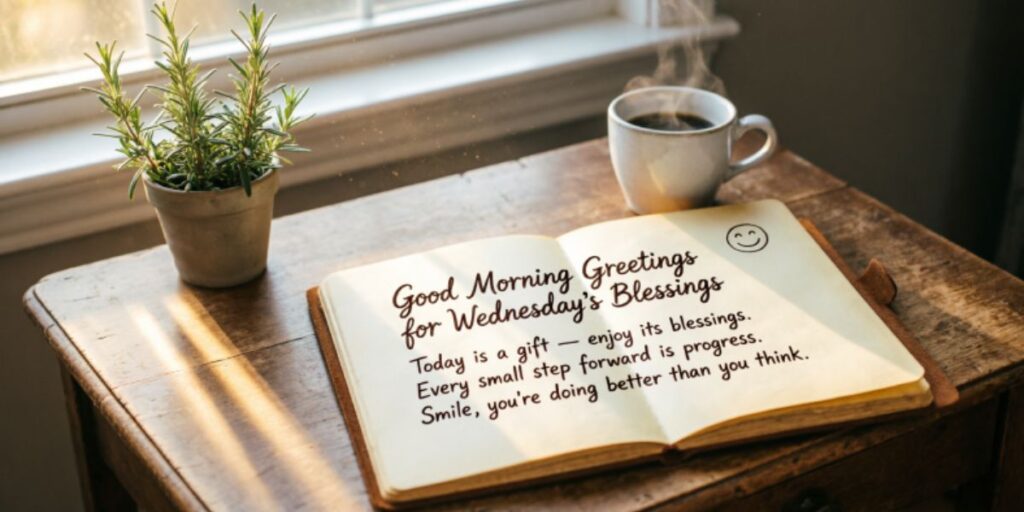 Good Morning Greetings
for Wednesday's Blessings
Today is a gift — enjoy its blessings.
Every small step forward is progress.
Smile, you're doing better than you think.